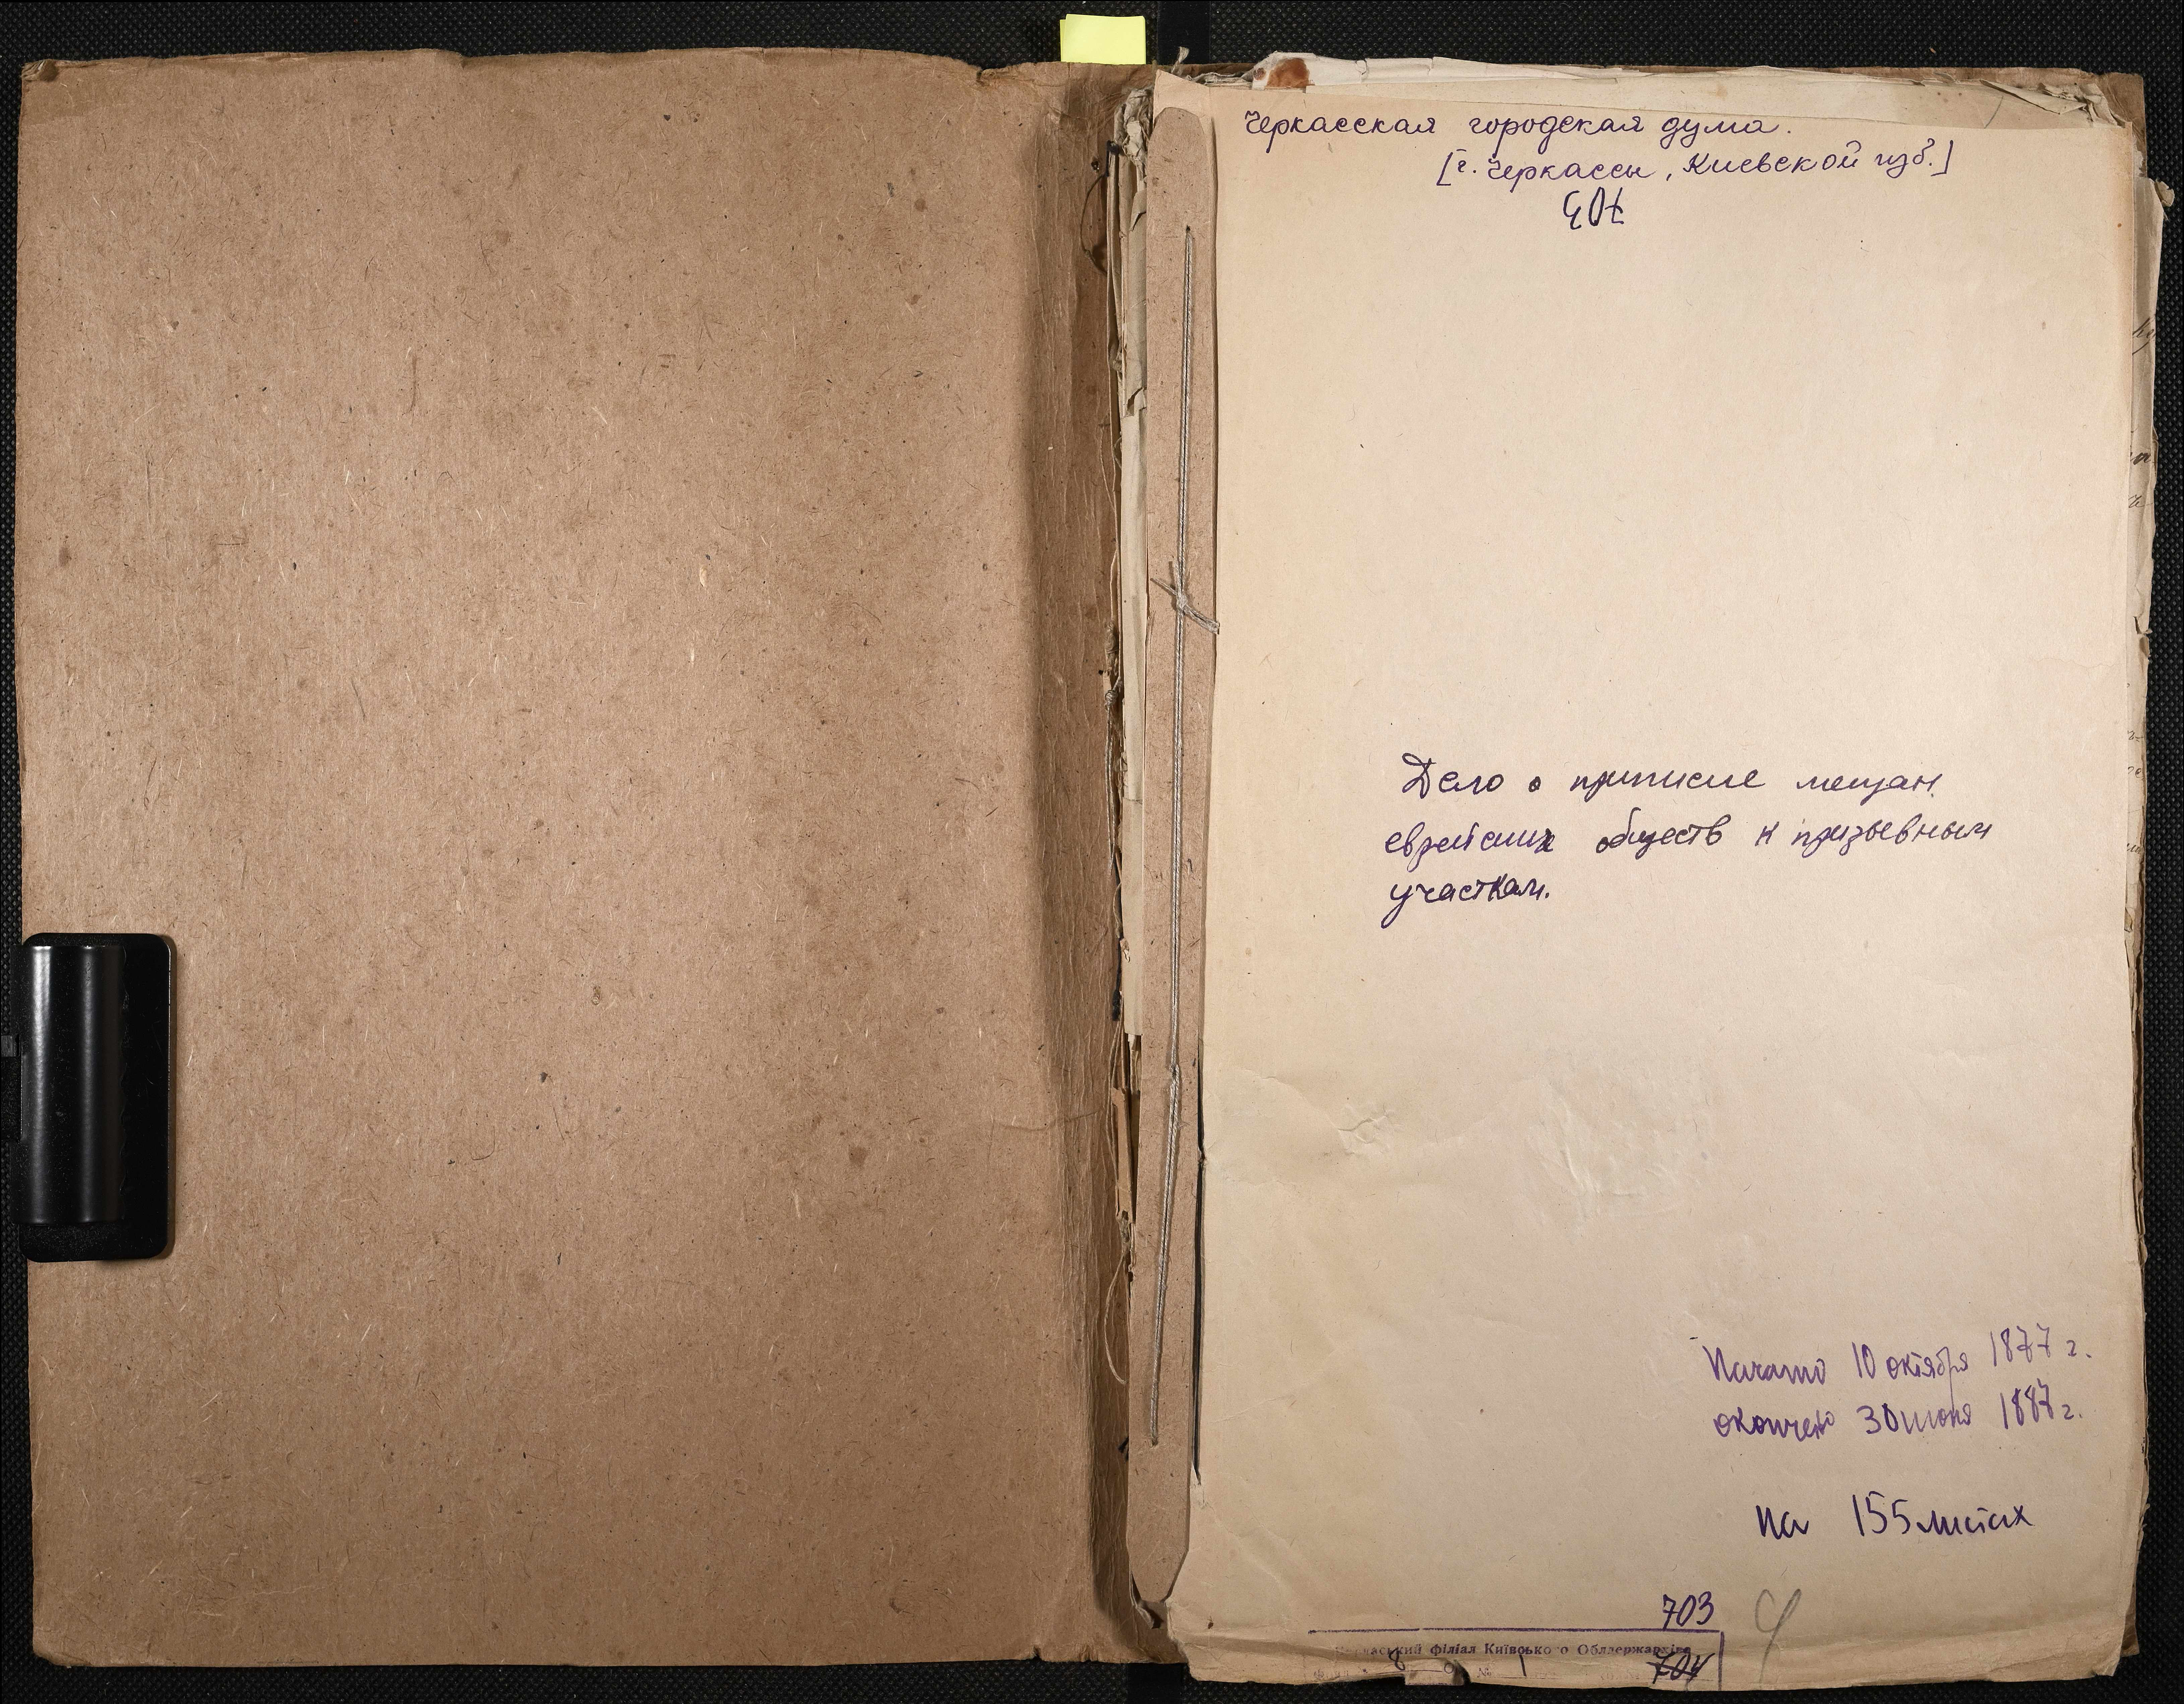 Черкасская городская дума.
[г. Черкассы, Киевской губ.]
Дело о приписке мещан.
еврейских обществ к призывным
участкам.
Начато 10 октября 1877 г.
окончено 30 июня 1887 г.
на 155 листах
703
філіал Київського Облдержархіва
8 № 1 704